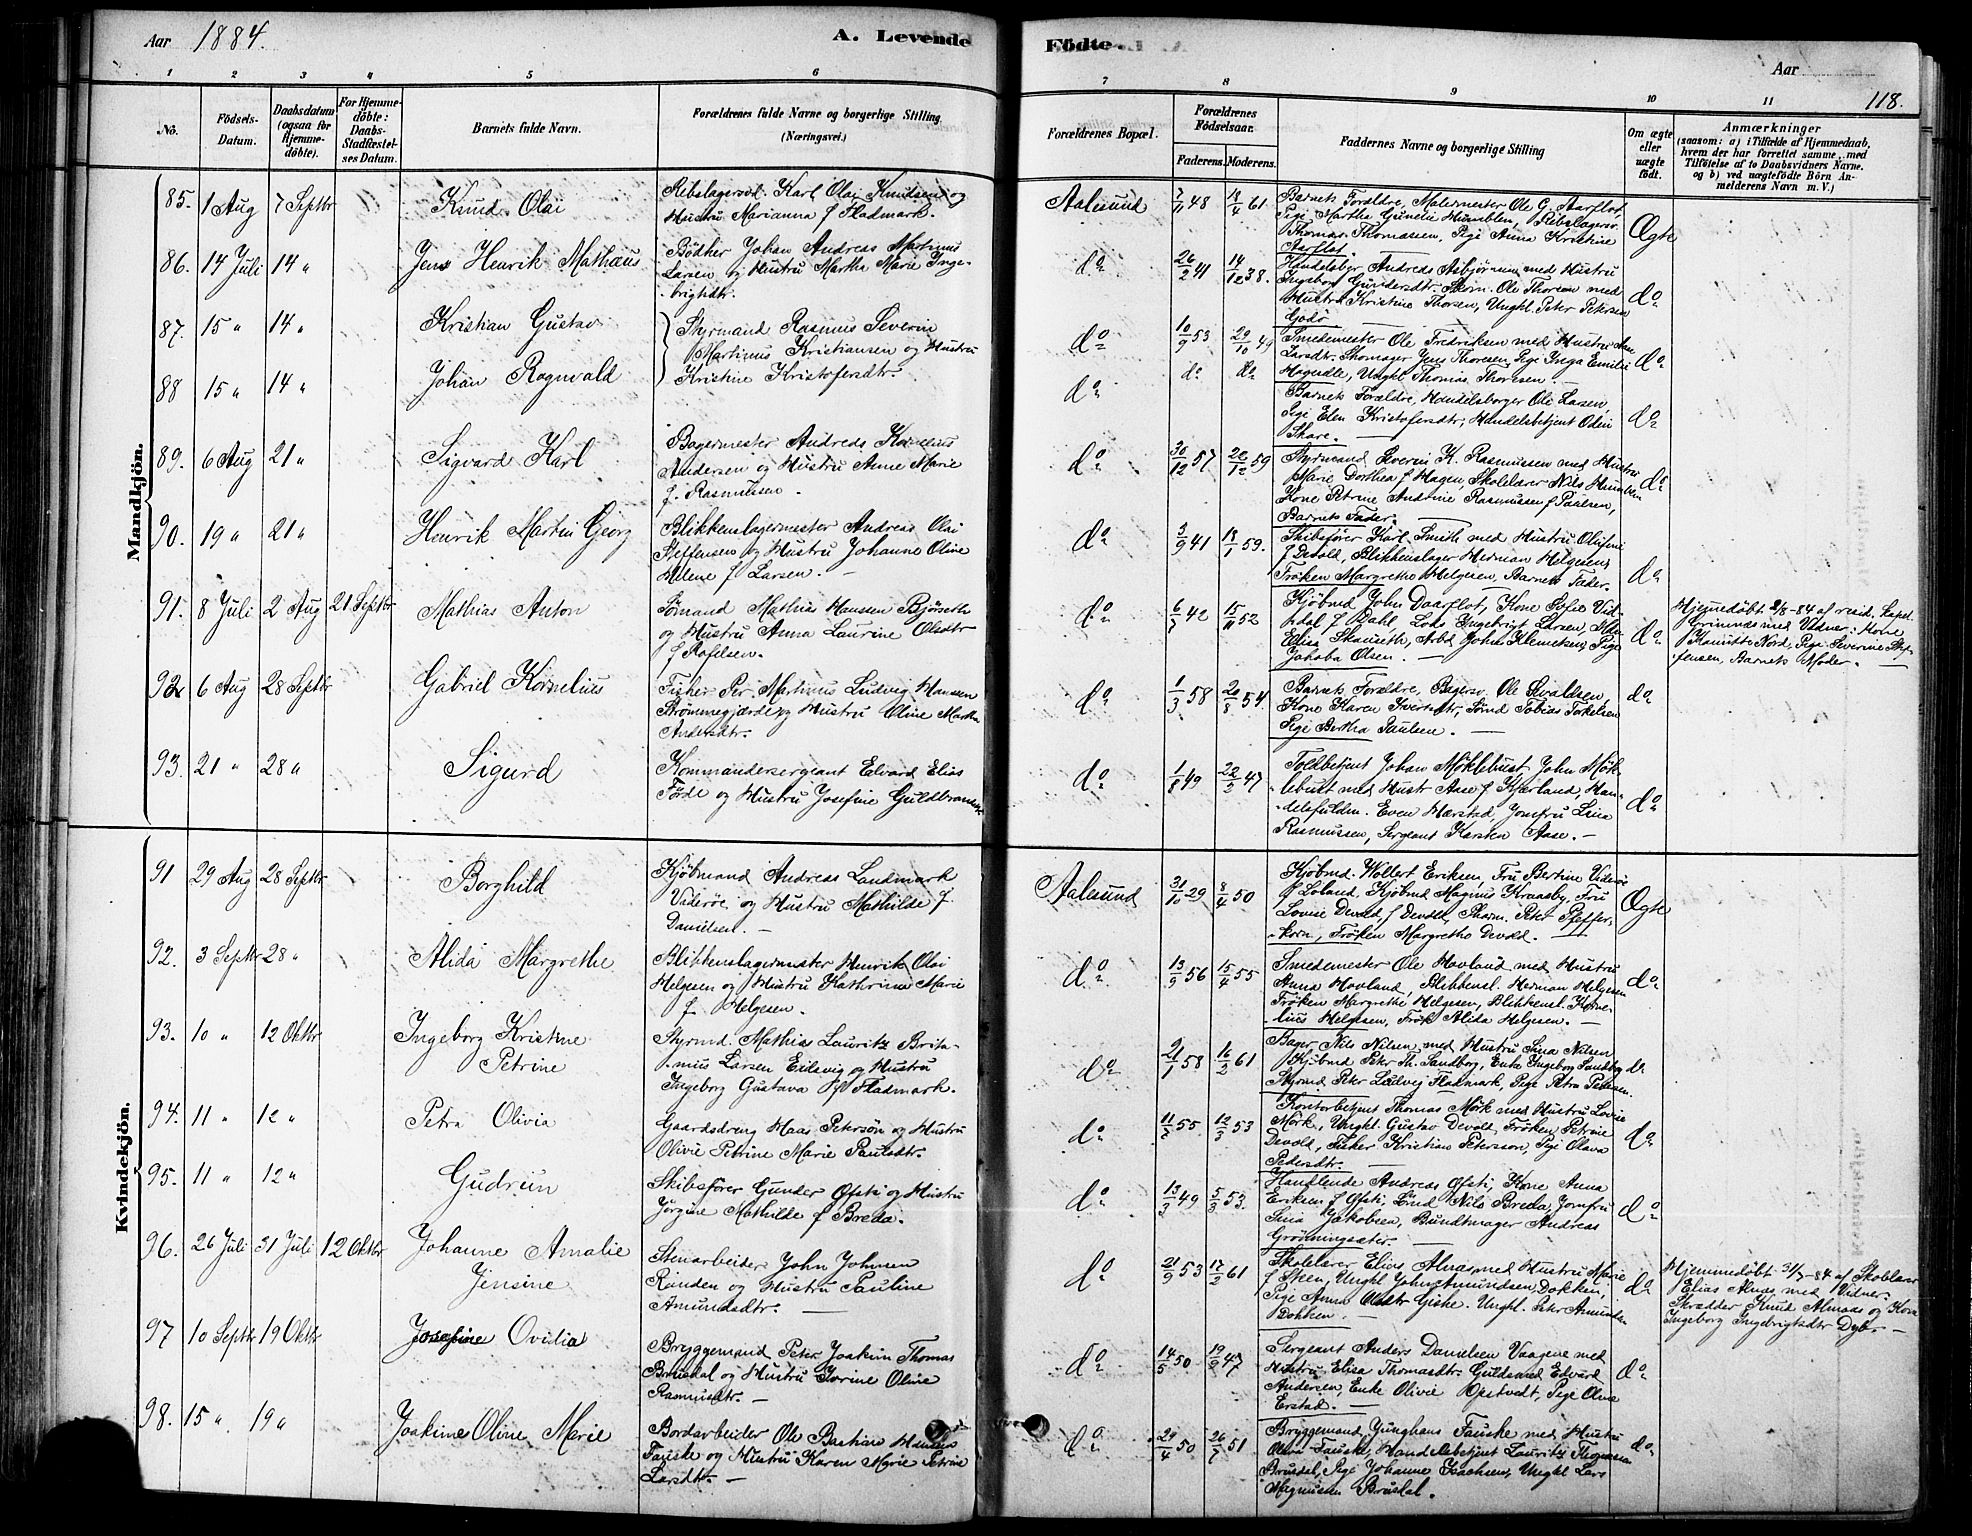 Aar 1884. A. Levende Fødte. Aar 118.
1 2 3 4 5 6 7 8 9 10 11
No.
Fødsels-Datum.
Daabsdatum (ogsaa for Hjemme-døbte).
For Hjemme-døbte: Daabs-Stadfæstel-ses Datum.
Barnets fulde Navn.
Forældrenes fulde Navne og borgerlige Stilling (Næringsvei.)
Forældrenes Bopæl.
Forældrenes Fødselsaar.
Faderens. Moderens.
Faddernes Navne og borgerlige Stilling
Om ægte eller uægte født.
Anmærkninger
(saasom: a) i Tilfælde af Hjemmedaab, hvem der har forrettet samme, med Tilføielse af to Daabsvidners Navne. og b) ved uægtefødte Børn An-melderens Navn m. V.)
Mandkjøn.
85. 1 Aug 7 Septbr Knud Olai
Rebslagersv. Karl Olai Knudsen og
Hustru Marianna f Fladmark.
Aalesund 7/11 48 18/4 61
Barnets Forældre, Malermester Ole G. Aarflot,
Pige Martha Gunelie Humblen, Rebslagersv.
Thomas Thomassen, Pige Anna Kristine
Aarflot.
Ægte
86. 14 Juli 14 " Jens Henrik Mathæus
Bødker Johan Andreas Martinus
Larsen og Hustru Martha Marie Inge-
brigtsdtr.
do 26/2 41 14/12 38.
Handelsber Andreas Asbjørnsen med Hustru
Ingeborg Gundersdtr. Skom. Ole Thorsen med
Hustru Kristine Thorsen, Unghl Peter Petersen
Godø
do
87. 15 " 14 " Kristian Gustav
Styrmand Rasmus Severin
Martinus Kristiansen og Hustru
Kristine Kristofersdtr.
do 10/9 53 29/10 49
Smedemester Ole Fredriksen med Hustru Ane
Larsdtr. Skomager Jens Thoresen, Pige Inga Emilie
Hagerdle, Unghl Thomas Thoresen.
do
88 15 " 14 " Johan Ragnvald
do do do
Barnets Forældre, Handelsborger Ole Larsen,
Pige Elen Kristofersdtr, Handelsbetjent Odin
Skare.
do
89. 6 Aug 21 " Sigvard Karl
Bagermester Andreas Kornelius
Andersen og Hustru Anne Marie
f. Rasmussen.
do 30/12 57 20/12 59
Styrmand Severin K. Rasmussen med Hustru
Marie Dorthea f Hagen, Skolelærer Nils Humblen
Kone Petrine Andrine Rasmussen f Paulsen,
Barnets Fader.
do
90. 19 " 21 " Henrik Martin Georg
Blikkenslagermester Andreas Olai
Steffensen og Hustru Johanne Oline
Helene f Larsen.
do 3/9 41 18/1 59.
Skibsfører Karl Smith med Hustru Olufine
f Devold, Blikkenslager Herman Helgesen,
Frøken Margrethe Helgesen, Barnets Fader.
do
91. 8 Juli 2 Aug 21 Septbr Mathias Anton
Sømand Mathias Hansen Bjørseth
og Hustru Anna Laurine Olsdtr
f Rafelsen.
do 6/7 42 15/11 52
Kjøbmd John Daarflot, Kone Sofie Vid-
dal f Dahl, Lods Engebrigt Larsen,
Elisa Skauseth, Arbd John Klemetsen, Pige
Jakoba Olsen.
do
Hjemmedøbt 2/8-84 af resid. Capel.
Grimnæs med Vidner: Kone
Nord, Pige Severine Stef-
fensen, Barnets Moder.
92 6 Aug 28 Septbr Gabriel Kornelius
Fisker Per Martinus Ludvig Hansen
Strømmegjærde og Hustru Oline Martha
Andersdtr.
do 1/3 58 20/8 54
Barnets Forældre, Bagersv. Ole Sivaldsen,
Kone Karen Ivertsdtr, Sømd Tobias Torkelsen
Pige Bertha Paulsen.
do
93. 21 " 28 " Sigurd
Kommandersergeant Edvard Elias
Førde og Hustru Josefine Guldbrandsen
do 1/8 49 22/2 47
Toldbetjent Johan Møklebust, John Møk-
lebust med Hustr Aase f Kjærland, Han-
delsfuldm. Even Mærstad, Jomfru Lina
Rasmussen, Sergeant Karsten Aase.
do
Kvindekjøn.
91 29 Aug 28 Septbr Borghild
Kjøbmand Andreas Landmark
Viderøe og Hustru Mathilde f.
Danielsen.
Aalesund 31/10 29 8/4 50
Kjøbmd. Wollert Eriksen, Fru Bertine Viderøe
f Løland, Kjøbmd Magnus Kraasby, Fru
Lovise Devold, f Devold, Pharm. Peter Pfeffer-
korn, Frøken Margrethe Devold.
Ægte
92. 3 Septbr 28 " Alida Margrethe
Blikkenslagermester Henrik Olai
Helgesen og Hustru Kathrine Marie
f. Helgesen.
do 13/9 56 15/4 55
Smedemester Ole Hovland med Hustru
Anna Hovland, Blikkensl. Herman Helgesen
Frøken Margrethe Helgesen, Blikkensl. Korne-
lius Helgesen, Frøk Alida Helgesen.
do
93. 10 " 12 Oktbr Ingeborg Kristine
Petrine
Styrmd. Mathias Lauritz Brita-
nius Larsen Eidsvig og Hustru
Ingeborg Gustava f Fladmark.
do 21/1 58 16/2 61
Bager Nils Nilsen med Hustru Sina Nilsen,
Kjøbmd Peter Th. Sandborg, Enke Ingeborg Sandborg
Styrmd. Peter Ludvig Fladmark, Pige Petra Petersen.
do
94. 11 " 12 " Petra Olivia
Gaardsdreng Haas Petersøn og Hustru
Olivie Petrine Marie Paulsdtr.
do 11/2 55. 12/3 53
Kontorbetjent Thomas Mørk med Hustru Lovise
Mørk, Unghl. Gustav Devold, Frøken Petrine
Devold, Fisker Kristian Petersson, Pige Olava
Pedersdtr.
do
95. 11 " 12 " Gudrun
Skibsfører Gunder Ofsti og Hustru
Jørgine Mathilde f Breda.
do 13/3 49 5/3 53.
Handlende Andreas Ofsti, Kone Anna
Eriksen f Ofsti, Sømd Nils Breda, Jomfru
Sina Jakobsen, Bundtmager Andreas
Grøvningsæter.
do
96. 26 Juli 31 Juli 12 Oktbr Johanne Amalie
Jensine
Stenarbeider John Johnsen
Randen og Hustru Pauline
Amundsdtr.
do 21/9 53 17/2 61
Skolelærer Elias Almas med Hustru Marie
f Steen, Unghl John Amundsen Dokken,
Pige Anna Olsdtr Giske. Unghl. Peter Amundsen
Dokken.
do
Hjemmedøbt 31/7-84 af Skolelærer
Elias Almas med Vidner.
Skrædder Knud Almaas og Kone
Ingeborg Ingebrigtsdtr Dyb.
97 10 Septbr 19 Oktbr Josefine Ovidia
Bryggemand Peter Joakim Thomas
Brusdal og Hustru Iverine Oline
Rasmusdtr.
do 14/5 50 19/9 47
Sergeant Anders Danielsen Vaagene med
Hustru Elisa Thomasdtr. Guldsmed Edvard
Andersen, Enke Olivie Opstvedt, Pige Oline
Erstad.
do
98. 15 " 19 " Joakime Oline Marie
Bordarbeider Ole Bastian Hansen
Fauske og Hustru Karen Marie Petrine
Larsdtr.
do 29/4 50 26/7 51
Bryggemand Junghans Fauske med Hustru
Olivie Fauske, Handelsbetjent Lauritz Thomassen
Brusdal, Pige Johanne Isachsen, Unghl Lars
Magnussen Brusdal.
do